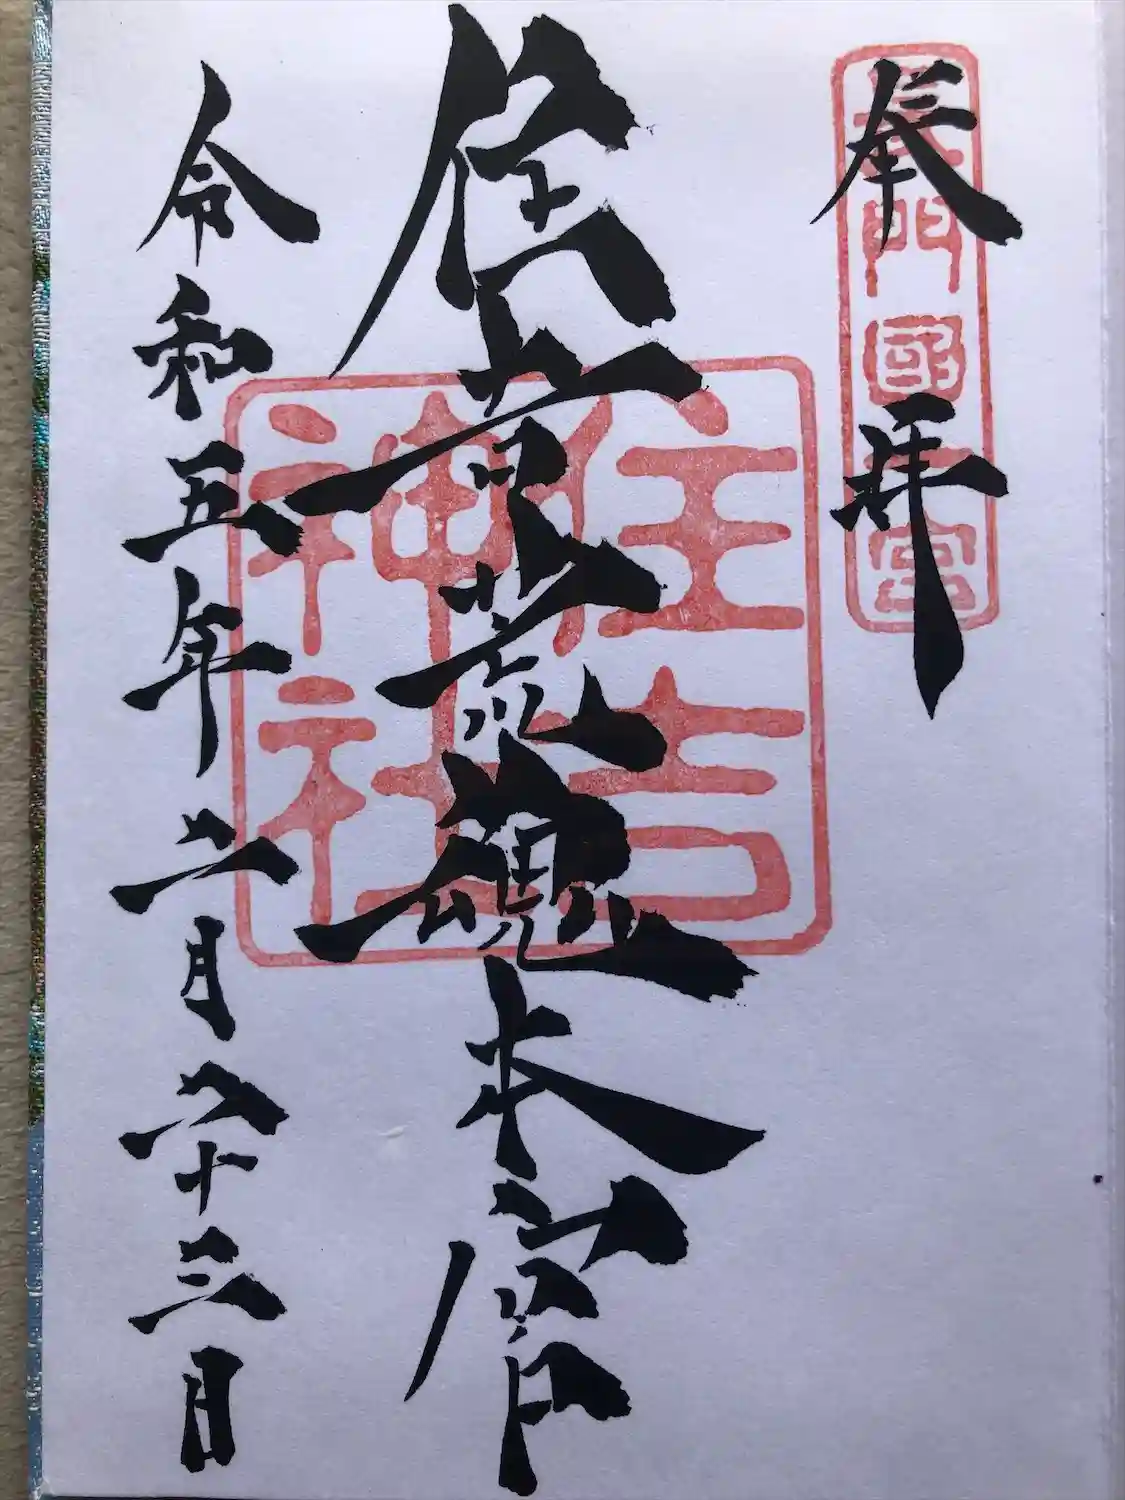 奉拝
長門國一宮
住吉荒魂本宮
住吉神社
令和五年二月二十三日